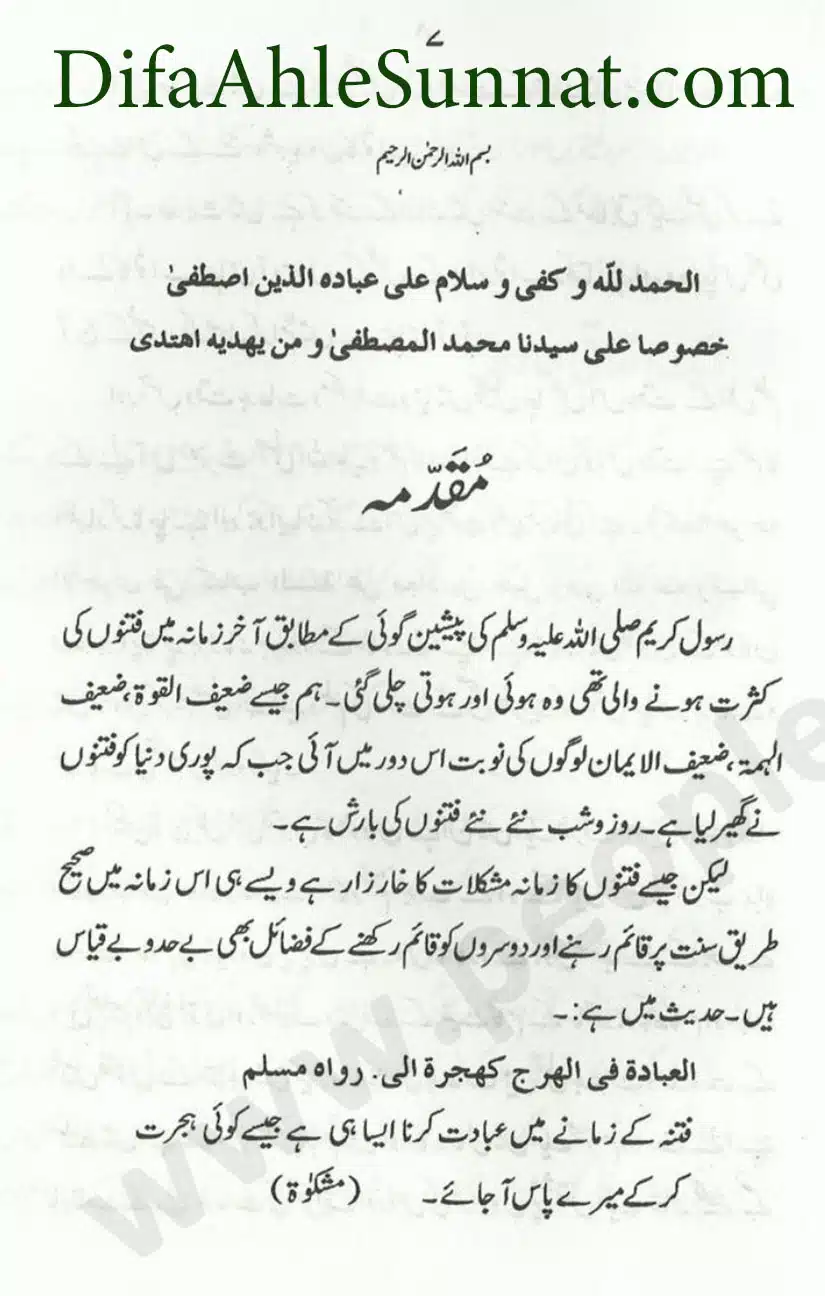 ۷
DifaAhleSunnat.com
بسم اللہ الرحمٰن الرحیم
الحمد للّٰہ و کفی و سلام علی عبادہ الذین اصطفیٰ
خصوصا علی سیدنا محمد المصطفیٰ و من یھدیہ اھتدی
مُقَدّمہ
رسول کریم صلی اللہ علیہ وسلم کی پیشین گوئی کے مطابق آخر زمانہ میں فتنوں کی
کثرت ہونے والی تھی وہ ہوئی اور ہوتی چلی گئی۔ ہم جیسے ضعیف القوۃ، ضعیف
الہمۃ، ضعیف الایمان لوگوں کی نوبت اس دور میں آئی جب کہ پوری دنیا کو فتنوں
نے گھیر لیا ہے۔ روز و شب نئے نئے فتنوں کی بارش ہے۔
لیکن جیسے فتنوں کا زمانہ مشکلات کا خارزار ہے ویسے ہی اس زمانہ میں صحیح
طریق سنت پر قائم رہنے اور دوسروں کو قائم رکھنے کے فضائل بھی بے حد و بے قیاس
ہیں۔ حدیث میں ہے:۔
العبادة فی الھرج کھجرة الی. رواہ مسلم
فتنہ کے زمانے میں عبادت کرنا ایسا ہی ہے جیسے کوئی ہجرت
کر کے میرے پاس آ جائے۔ (مشکوٰۃ)
www.people